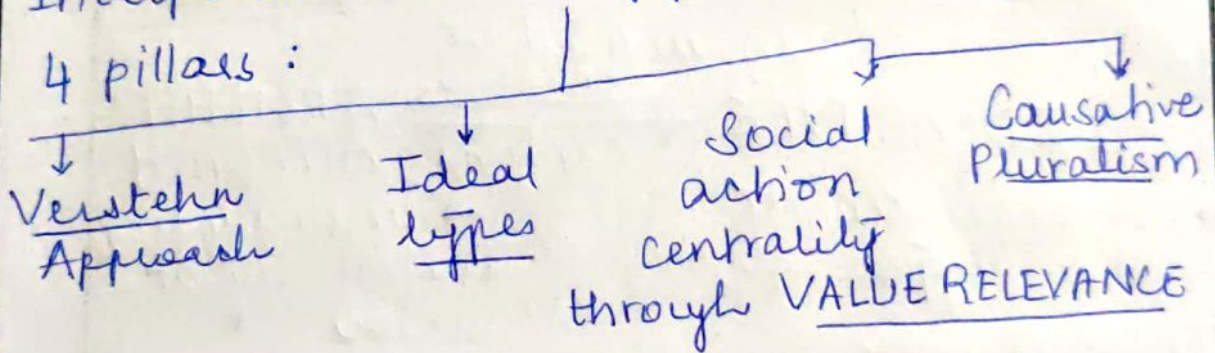 4 pillars :
Verstehn
Approach
Ideal
types
Social
action
centrality
through VALUE RELEVANCE
Causative
Pluralism